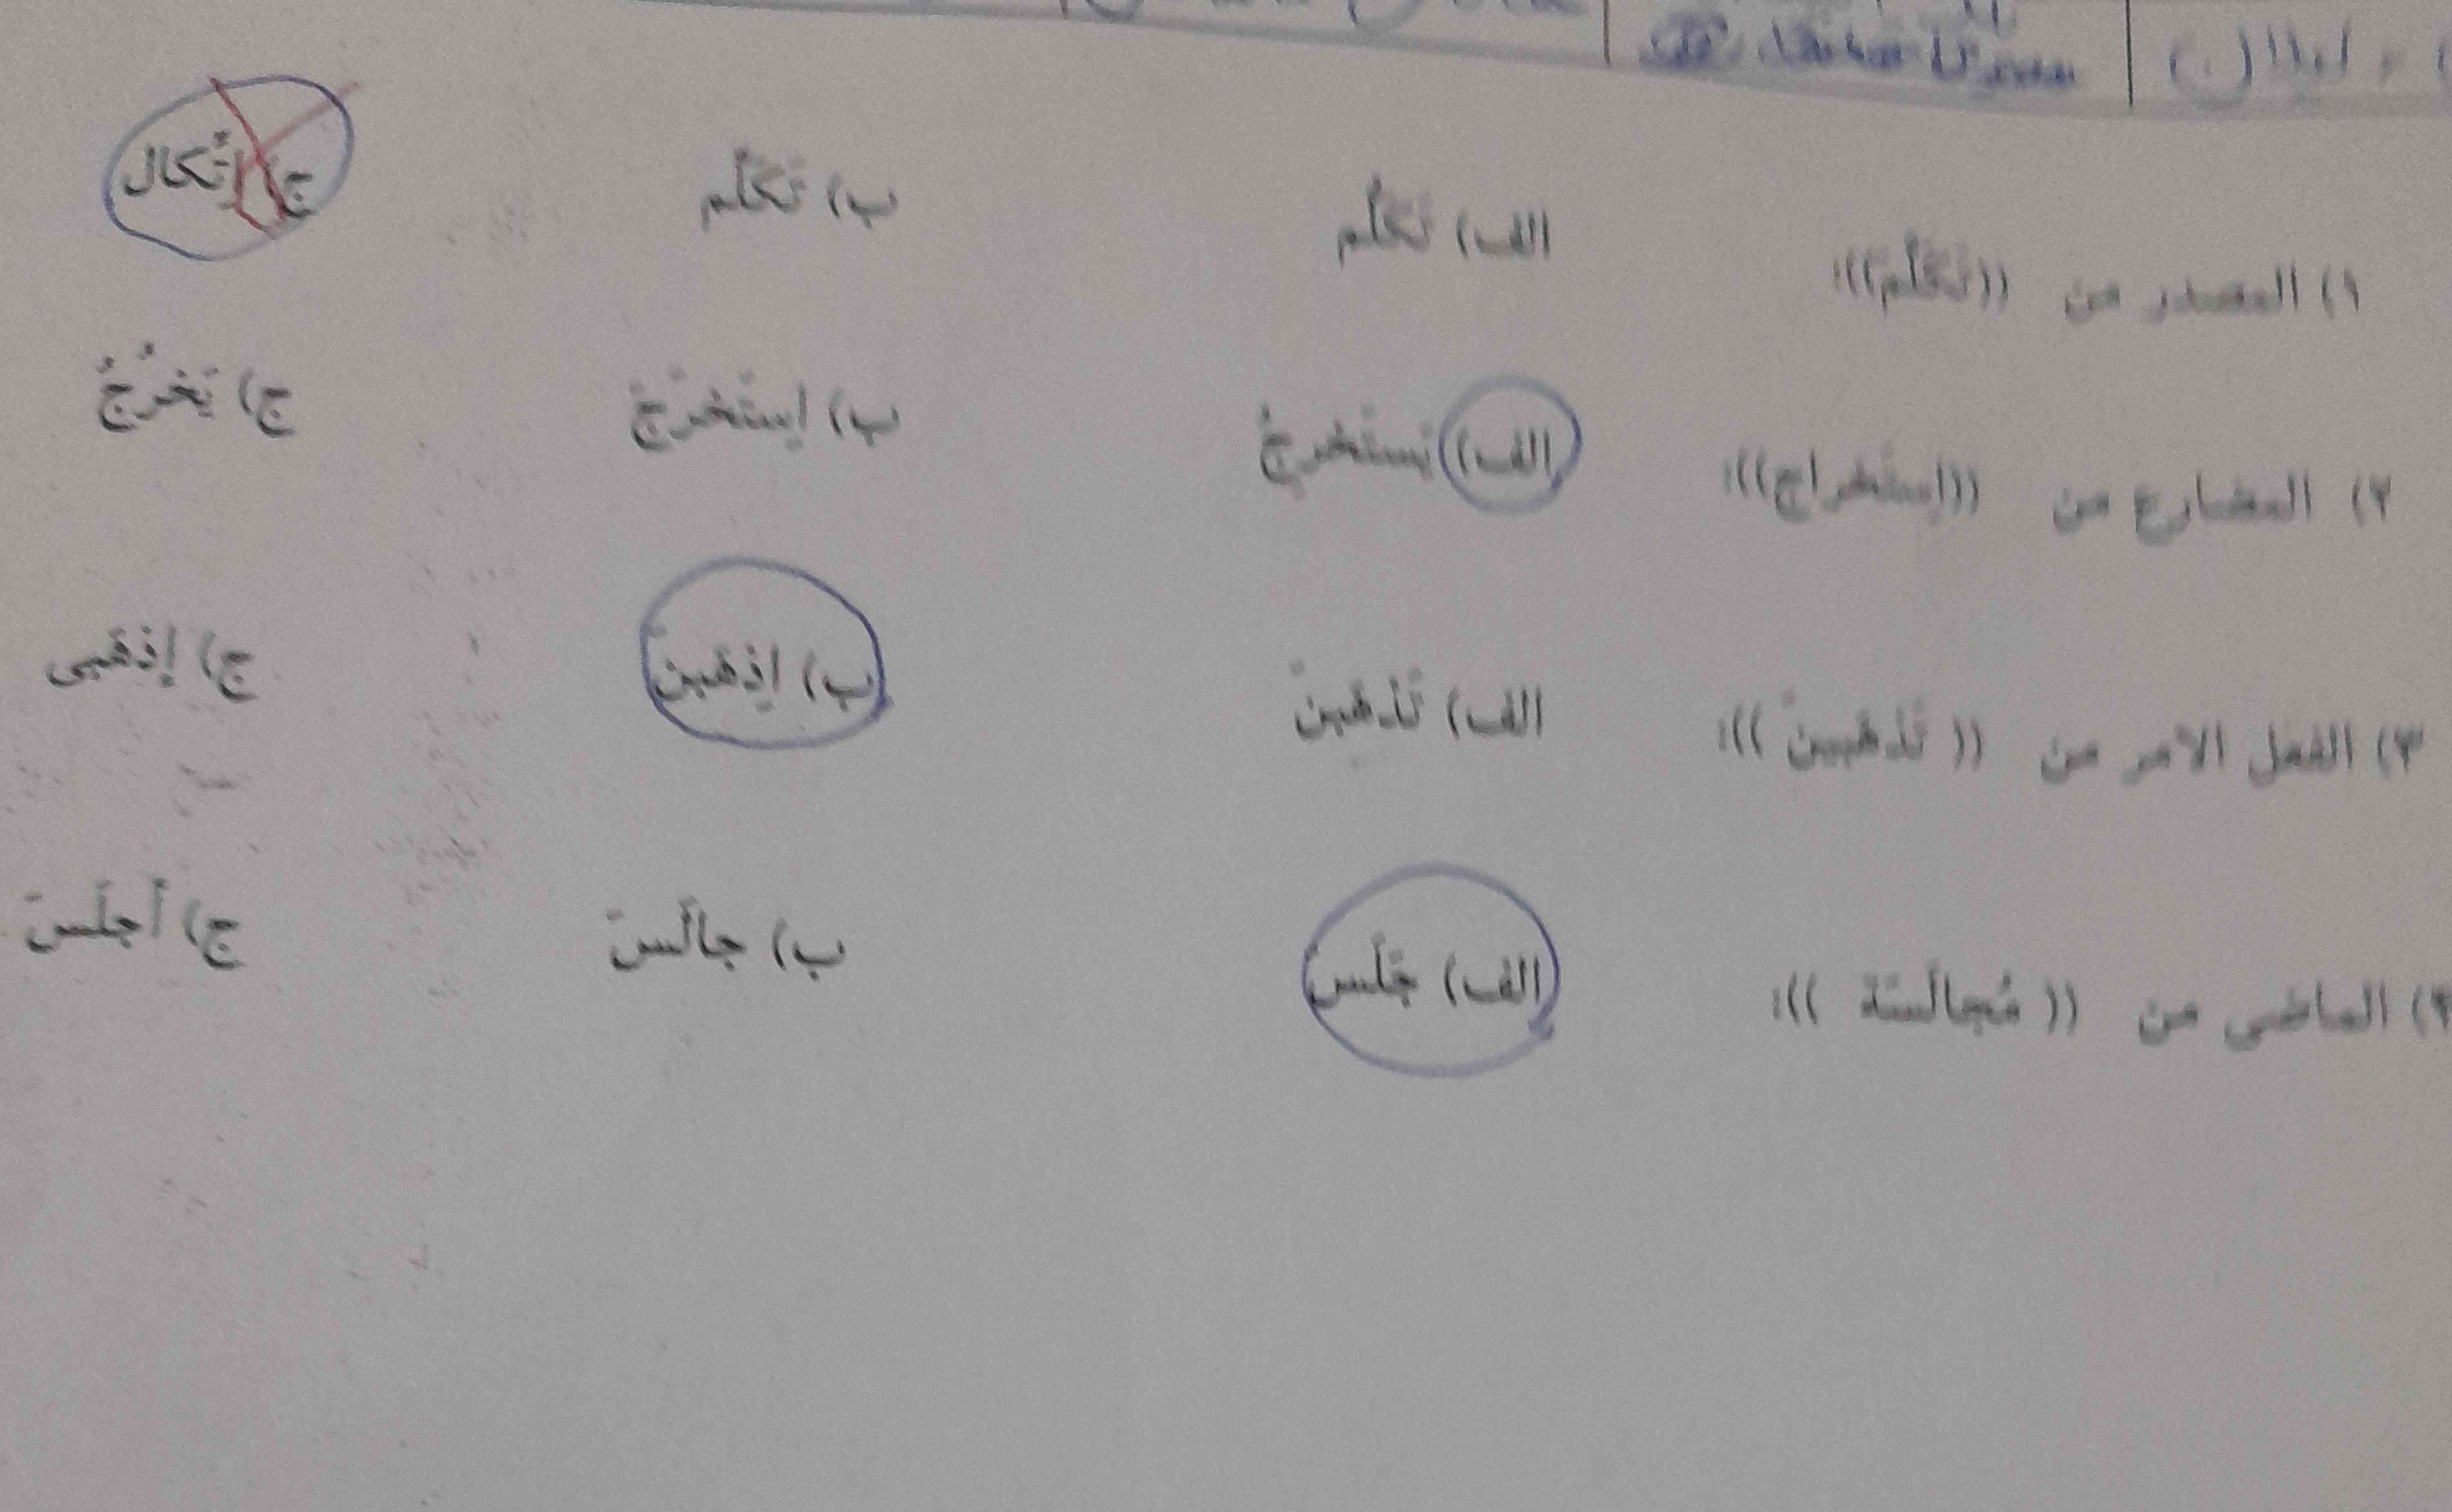 ۱) المصدر من ((تَكَلَّمَ)): الف) تَكَلُّم ب) تَكَلَّم ج) اِتِّكال
۲) المضارع من ((اِستخراج)): الف) يَستَخرِجُ ب) اِستَخرَجَ ج) يَخرُجُ
۳) الفعل الامر من (( تَذهَبينَ )): الف) تَذهَبنَ ب) اِذهَبنَ ج) إذهَبى
۴) الماضى من (( مُجالَسَة )): الف) جَلَسَ ب) جالَسَ ج) أجلَسَ